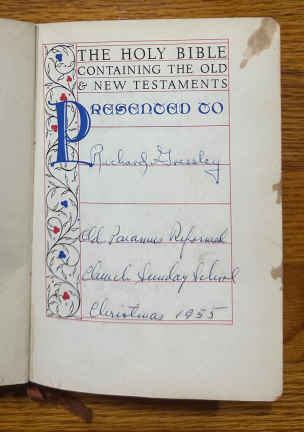 THE HOLY BIBLE
CONTAINING THE OLD
& NEW TESTAMENTS
PRESENTED TO
Richard Gressley
Old Paramus Reformed
Church Sunday School
Christmas 1955